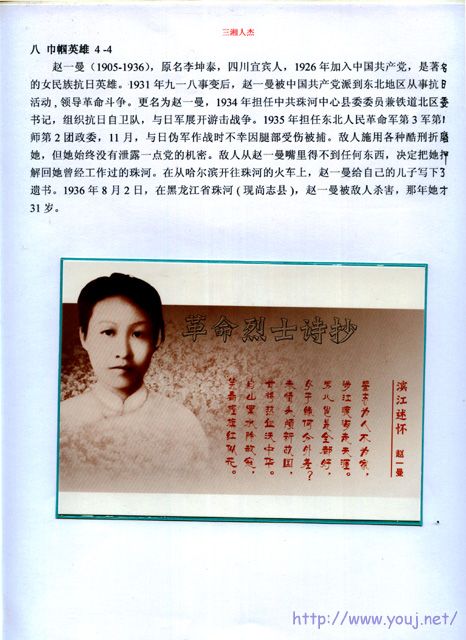 三湘人杰
八 巾帼英雄 4-4
赵一曼(1905-1936),原名李坤泰,四川宜宾人,1926年加入中国共产党,是著名
的女民族抗日英雄。1931年九一八事变后,赵一曼被中国共产党派到东北地区从事抗日
活动,领导革命斗争。更名为赵一曼,1934年担任中共珠河中心县委委员兼铁道北区委
书记,组织抗日自卫队,与日军展开游击战争。1935年担任东北人民革命军第3军第1
师第2团政委,11月,与日伪军作战时不幸因腿部受伤被捕。敌人施用各种酷刑折磨
她,但她始终没有泄露一点党的机密。敌人从赵一曼嘴里得不到任何东西,决定把她押
解回她曾经工作过的珠河。在从哈尔滨开往珠河的火车上,赵一曼给自己的儿子写下了
遗书。1936年8月2日,在黑龙江省珠河(现尚志县),赵一曼被敌人杀害,那年她才
31岁。
革命烈士诗抄
滨江述怀 赵一曼
誓志为人不为家,
涉江渡海走天涯。
男儿岂是全都好,
女子缘何分外差?
未惜头颅新故国,
甘将热血沃中华。
白山黑水除敌寇,
笑看旌旗红似花。
http://www.youj.net/